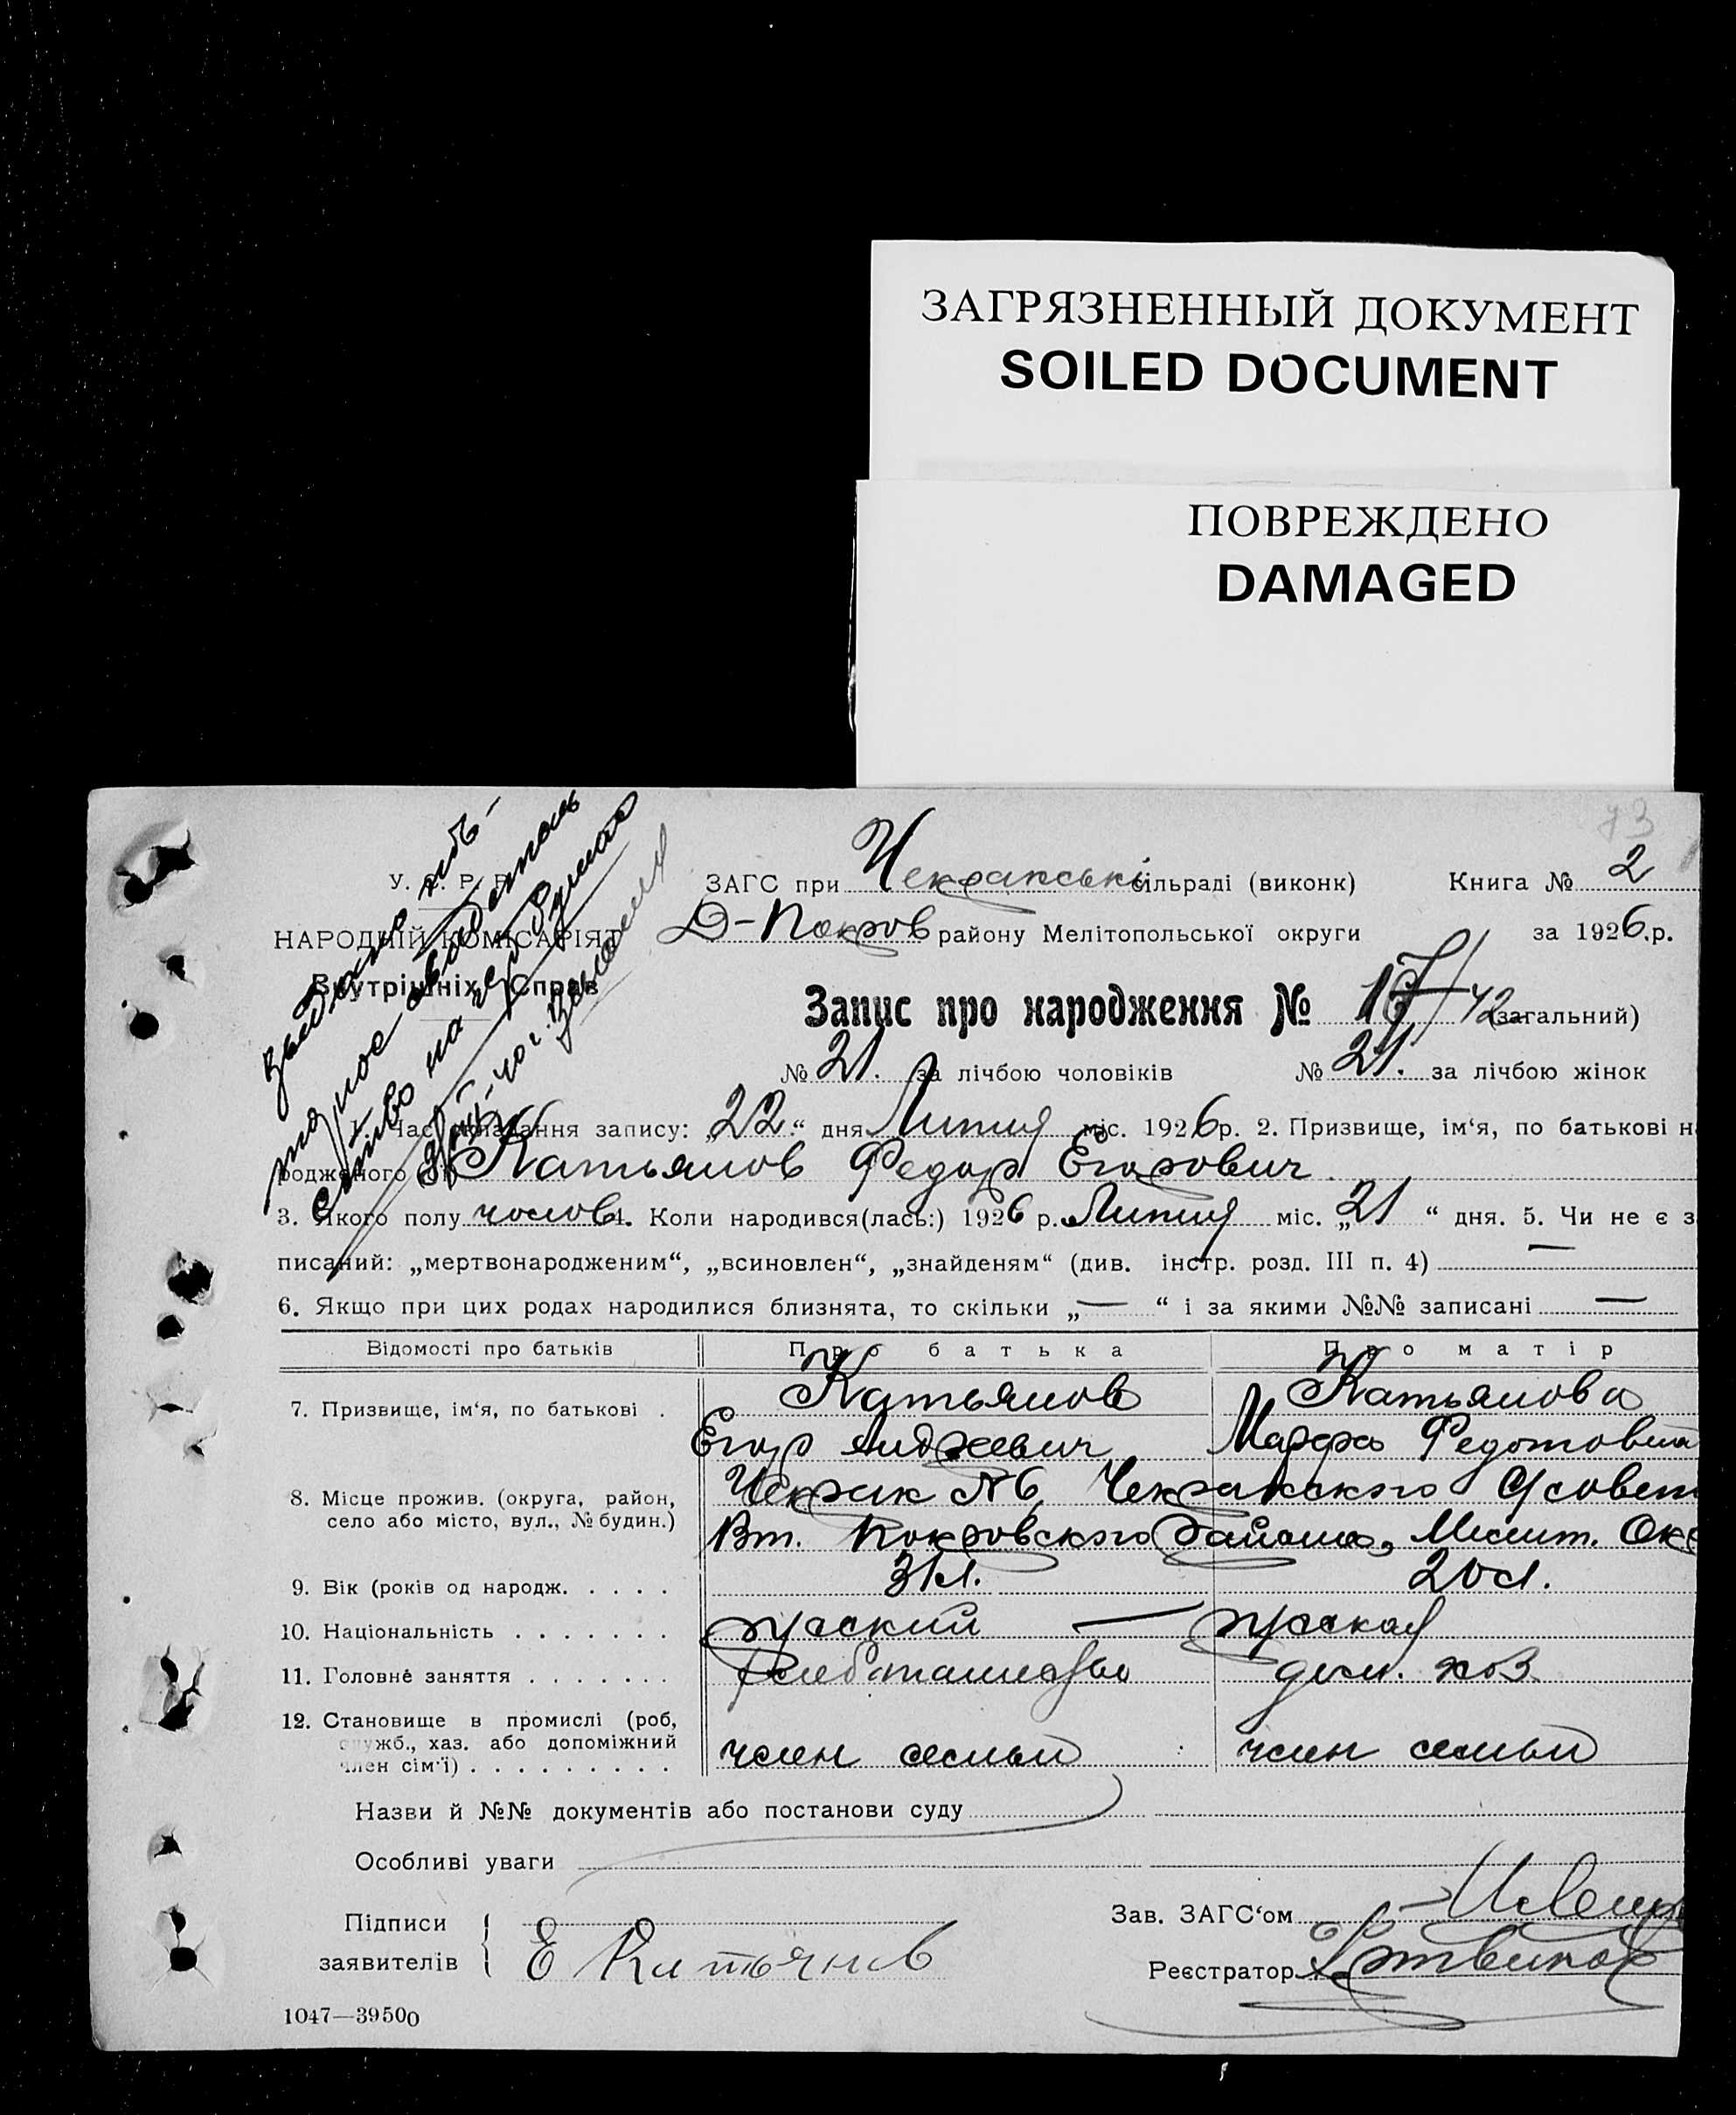 ЗАГРЯЗНЕННЫЙ ДОКУМЕНТ
SOILED DOCUMENT
ПОВРЕЖДЕНО
DAMAGED
73
У. Р. Р.
НАРОДНІЙ КОМІСАРІЯТ
Внутрішніх Справ
ЗАГС при Чекракській сільраді (виконк) Книга № 2
Д-Покров району Мелітопольської округи за 1926 р.
Запис про народження № 42 (загальний)
№ 21. за лічбою чоловіків № 21. за лічбою жінок
1. Час складання запису: „22“ дня Липня міс. 1926 р. 2. Призвище, ім‘я, по батькові н
родженого Катьянов Федор Егорович
3. Якого полу чолов. 4. Коли народився(лась:) 1926 р. Липня міс. „21“ дня. 5. Чи не є з
писаний: „мертвонародженим“, „всиновлен“, „знайденям“ (див. інстр. розд. III п. 4) —
6. Якщо при цих родах народилися близнята, то скільки „—“ і за якими №№ записані —
Відомості про батьків Про батька Про матір
7. Призвище, ім‘я, по батькові . Катьянов Катьянова
Егор Андреевич Марфа Федотовна
8. Місце прожив. (округа, район, село або місто, вул., № будин.) Чекрак №6, Чекракского С/совет
Вт. Покровского района, Мелит. Окр
9. Вік (років од народж. . . . . 31 л. 20 л.
10. Національність . . . . . . . русский — русская
11. Головнé заняття . . . . . . . хлебопашество дом. хоз
12. Становище в промислі (роб,
служб., хаз. або допоміжний
член сім‘ї) . . . . . . . . . член семьи член семьи
Назви й №№ документів або постанови суду
Особливі уваги
Підписи заявителів Е Катьянов
Зав. ЗАГС‘ом
Реєстратор
1047—39500